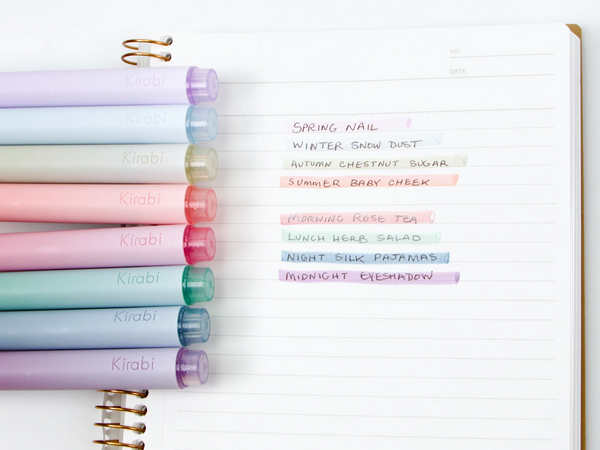 Kirabi
Kirabi
Kirabi
Kirabi
Kirabi
Kirabi
Kirabi
Kirabi
NO.
DATE
SPRING NAIL
WINTER SNOW DUST
AUTUMN CHESTNUT SUGAR
SUMMER BABY CHEEK
MORNING ROSE TEA
LUNCH HERB SALAD
NIGHT SILK PAJAMAS
MIDNIGHT EYESHADOW